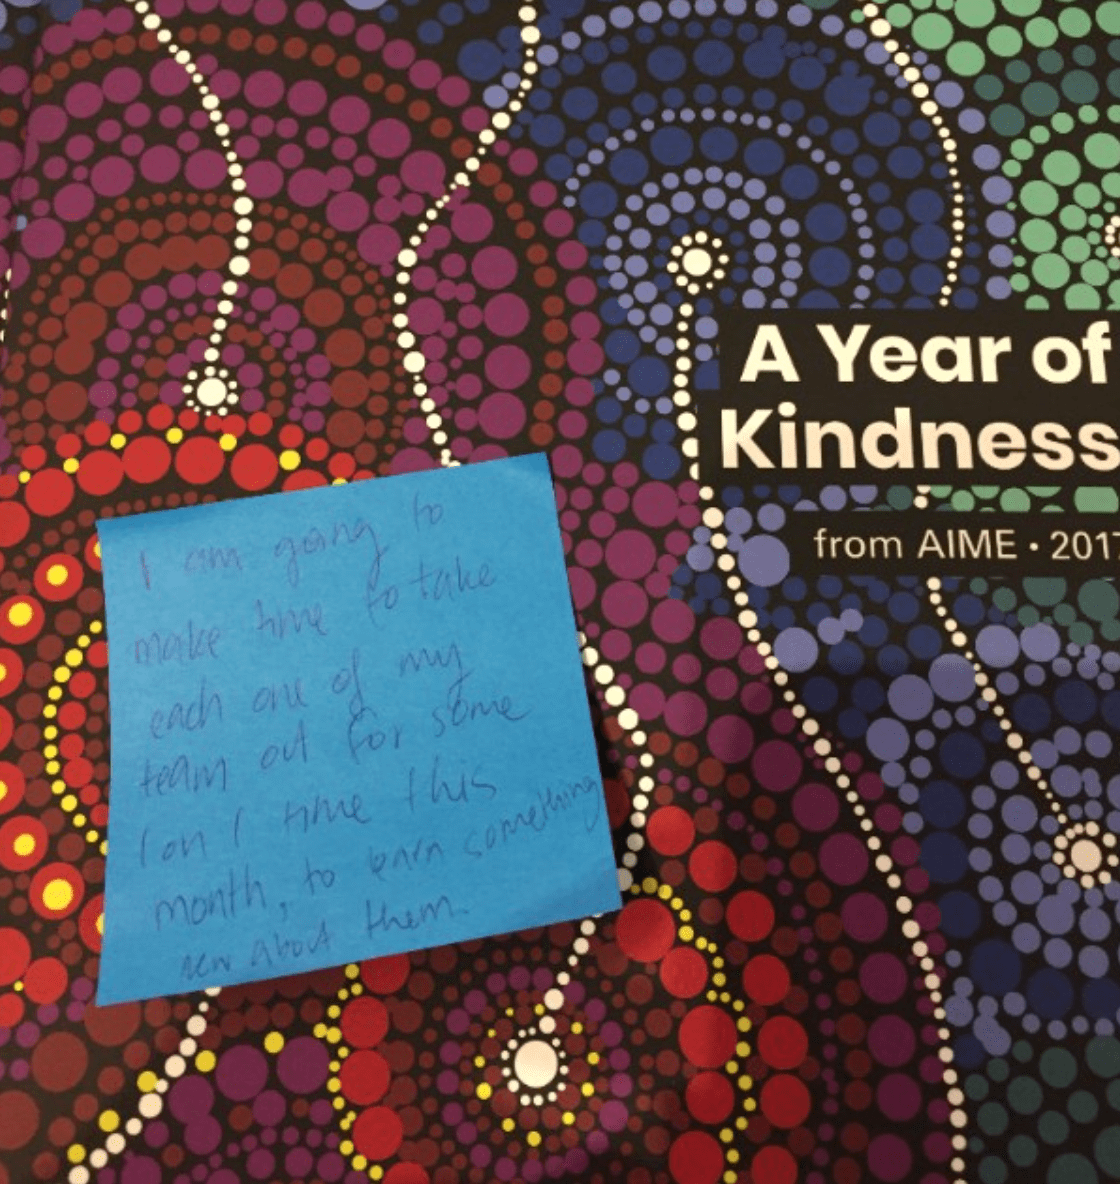 A Year of
Kindness
from AIME • 2017
I am going to
make time to take
each one of my
team out for some
1 on 1 time this
month, to learn something
new about them.